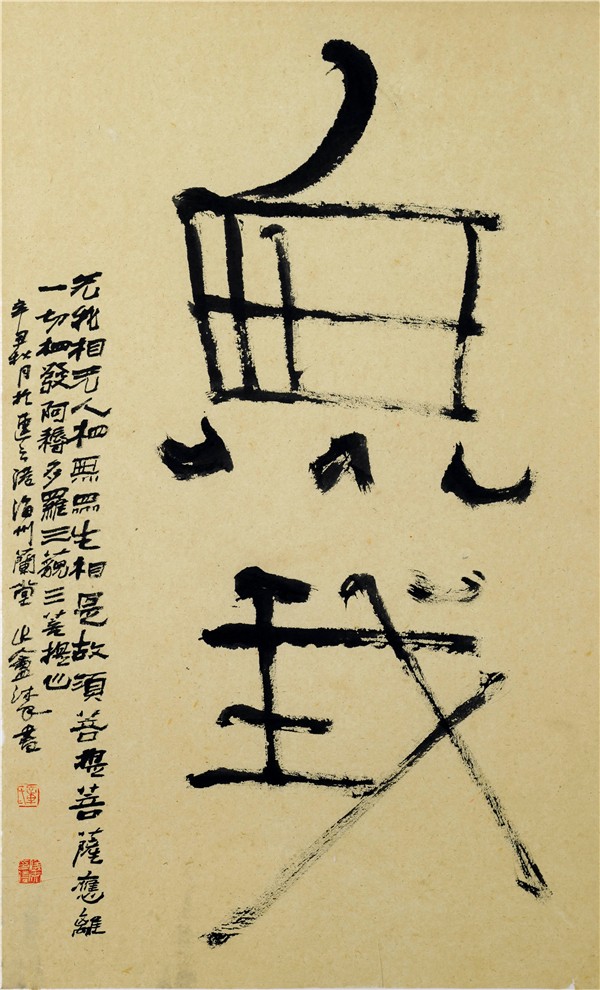 無我
无我相无人相無眾生相是故須菩提菩薩應離
一切相發阿耨多羅三藐三菩提心
辛丑秋月於連云港海州蘭堂止盦書